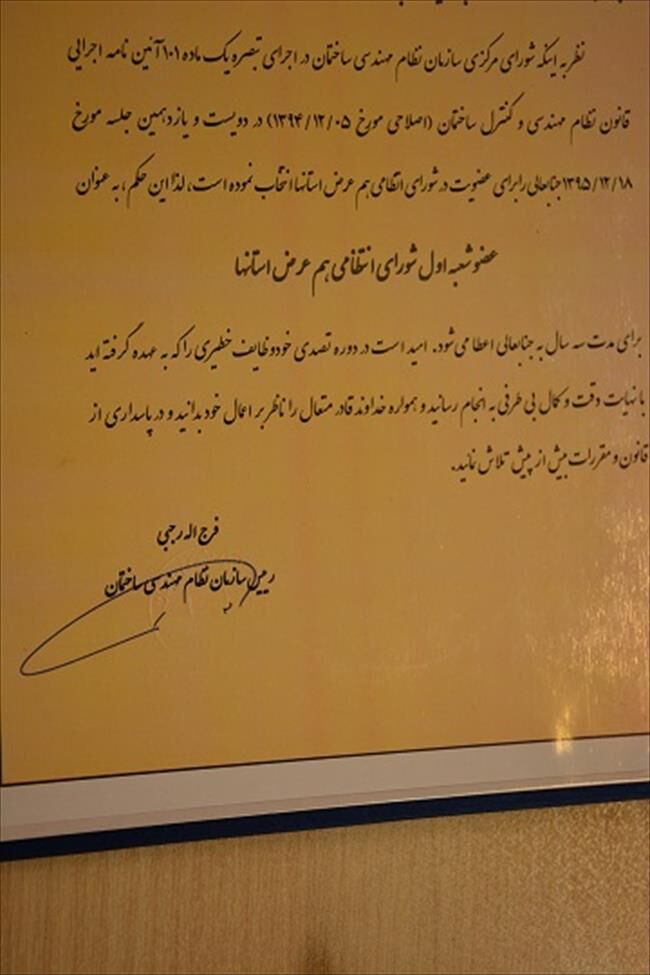 نظر به اینکه شورای مرکزی سازمان نظام مهندسی ساختمان در اجرای تبصره یک ماده ۱۰۱ آئین نامه اجرایی
قانون نظام مهندسی و کنترل ساختمان (اصلاحی مورخ ۱۳۹۴/۱۲/۰۵) در دویست و یازدهمین جلسه مورخ
۱۳۹۵/۱۲/۱۸ جنابعالی را برای عضویت در شورای انتظامی هم عرض استانها انتخاب نموده است، لذا این حکم، به عنوان
عضو شعبه اول شورای انتظامی هم عرض استانها
برای مدت سه سال به جنابعالی اعطا می‌شود. امید است در دوره تصدی خود وظایف خطیری را که به عهده گرفته اید
با نهایت دقت و کمال بی طرفی به انجام رسانید و همواره خداوند قادر متعال را ناظر بر اعمال خود بدانید و در پاسداری از
قانون و مقررات بیش از پیش تلاش نمائید.
فرج اله رجبی
رییس سازمان نظام مهندسی ساختمان